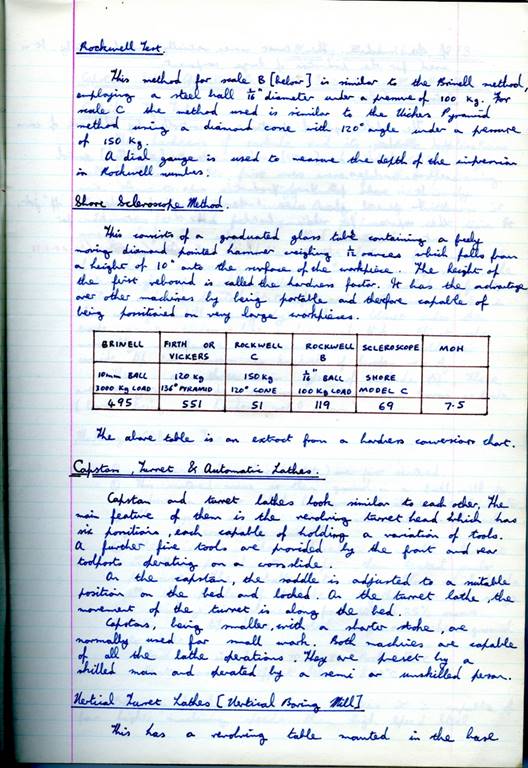 Rockwell Test.
This method for scale B [below] is similar to the Brinell method,
employing a steel ball 1/16" diameter under a pressure of 100 Kg. For
scale C the method used is similar to the Vickers Pyramid
method using a diamond cone with 120° angle under a pressure
of 150 Kg.
A dial gauge is used to measure the depth of the impression
in Rockwell number.
Shore Scleroscope Method.
This consists of a graduated glass tube containing a freely
moving diamond pointed hammer weighing 1/12 ounces which falls from
a height of 10" onto the surface of the workpiece. The height of
the first rebound is called the hardness factor. It has the advantage
over other machines by being portable and therefore capable of
being positioned on very large workpieces.
BRINELL FIRTH OR VICKERS ROCKWELL C ROCKWELL B SCLEROSCOPE MOH
10mm BALL 3000 Kg LOAD 120 Kg 136° PYRAMID 150 Kg 120° CONE 1/16" BALL 100 Kg LOAD SHORE MODEL C
495 551 51 119 69 7.5
The above table is an extract from a hardness conversion chart.
Capstan, Turret & Automatic Lathes.
Capstan and turret lathes look similar to each other. The
main feature of them is the revolving turret head which has
six positions, each capable of holding a variation of tools.
A further five tools are provided by the front and rear
toolposts operating on a crosslide.
On the capstan, the saddle is adjusted to a suitable
position on the bed and locked. On the turret lathe, the
movement of the turret is along the bed.
Capstans, being smaller, with a shorter stroke, are
normally used for small work. Both machines are capable
of all the lathe operations. They are preset by a
skilled man and operated by a semi or unskilled person.
Vertical Turret Lathes [Vertical Boring Mill]
This has a revolving table mounted in the base